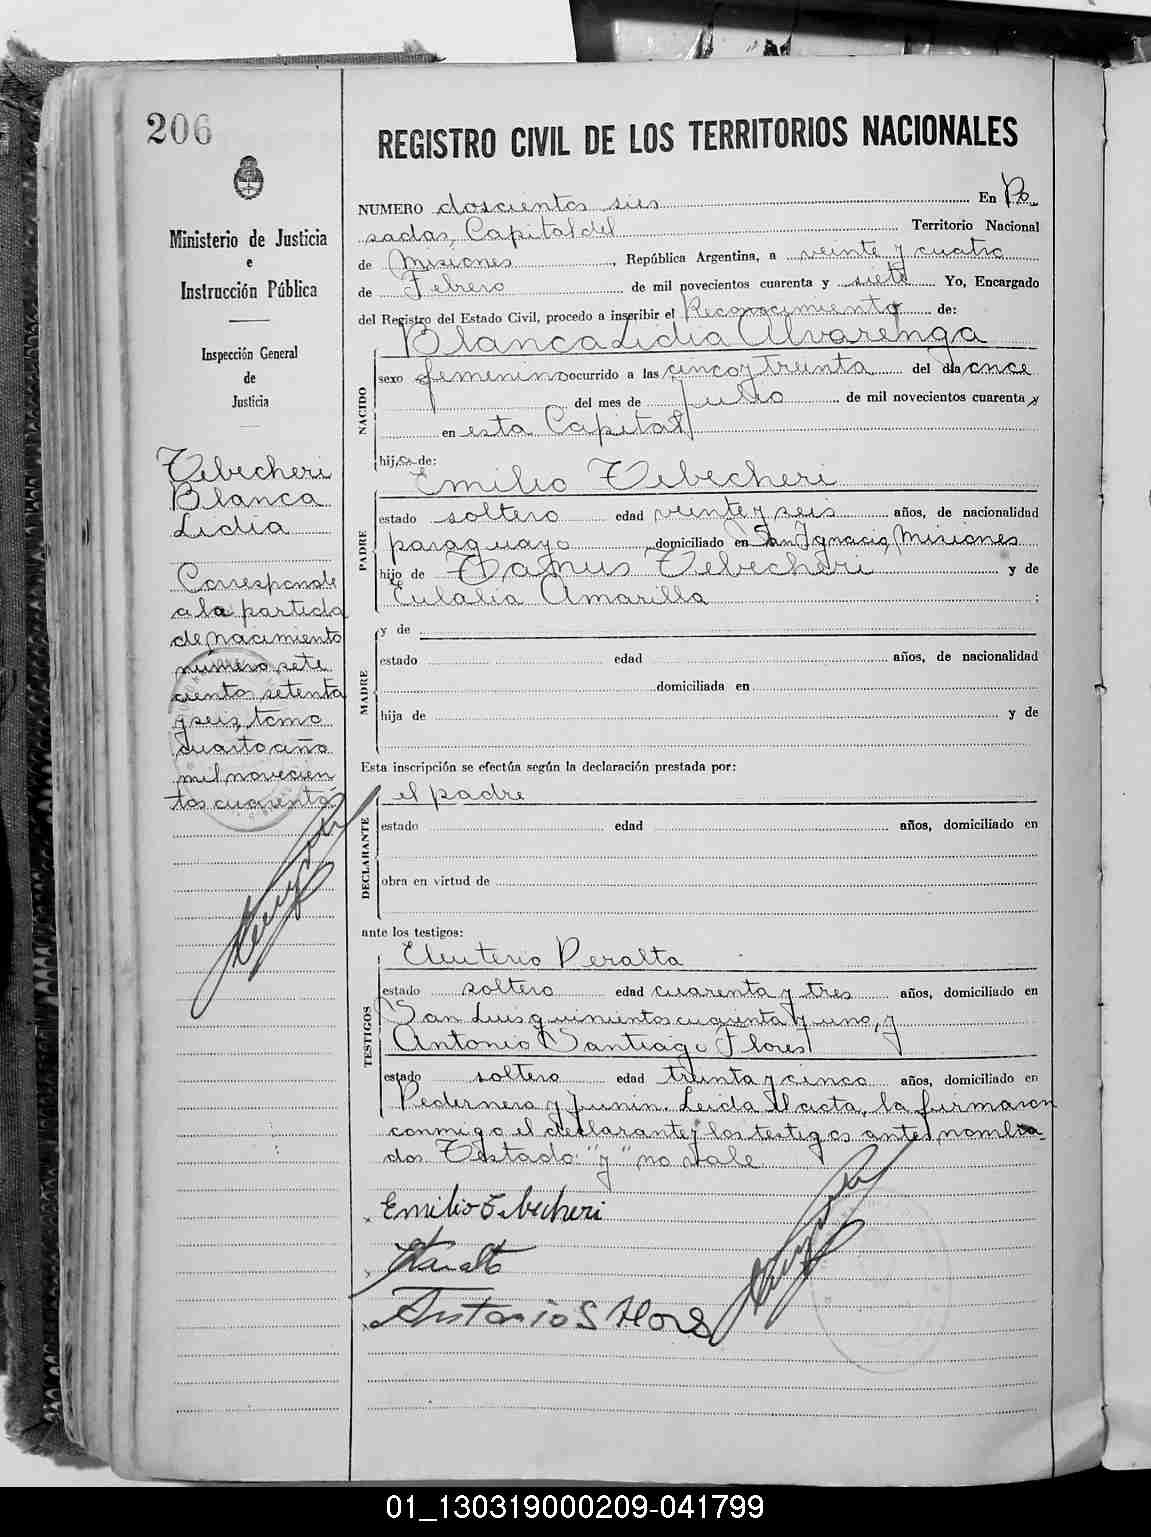 206
Ministerio de Justicia
e
Instrucción Pública
Inspección General
de
Justicia
Tebecheri
Blanca
Lidia
Corresponde
a la partida
de nacimiento
número sete
cientos setenta
y seis, tomo
cuarto año
mil novecien
tos cuarenta
REGISTRO CIVIL DE LOS TERRITORIOS NACIONALES
NUMERO doscientos seis En Po
sadas, Capital del Territorio Nacional
de Misiones, República Argentina, a veinte y cuatro
de Febrero de mil novecientos cuarenta y siete Yo, Encargado
del Registro del Estado Civil, procedo a inscribir el Reconocimiento de:
Blanca Lidia Alvarenga
NACIDO
sexo femenino ocurrido a las cinco y treinta del día once
del mes de Julio de mil novecientos cuarenta y
en esta Capital
hija de:
Emilio Tebecheri
PADRE
estado soltero edad veinte y seis años, de nacionalidad
paraguayo domiciliado en San Ignacio, Misiones
hijo de Tamus Tebecheri y de
Eulalia Amarilla ;
MADRE
y de
estado edad años, de nacionalidad
domiciliada en
hija de y de
Esta inscripción se efectúa según la declaración prestada por:
el padre
DECLARANTE
estado edad años, domiciliado en
obra en virtud de
ante los testigos:
TESTIGOS
Eleuterio Peralta
estado soltero edad cuarenta y tres años, domiciliado en
San Luis quinientos cuarenta y uno, y
Antonio Santiago Flores
estado soltero edad treinta y cinco años, domiciliado en
Pedernera y Junin. Leida el acta, la firmaron
conmigo el declarante y los testigos antes nombra
dos Testado: "y" no vale
Emilio Tebecheri
Peralta
Antonio S Flores
01_130319000209-041799